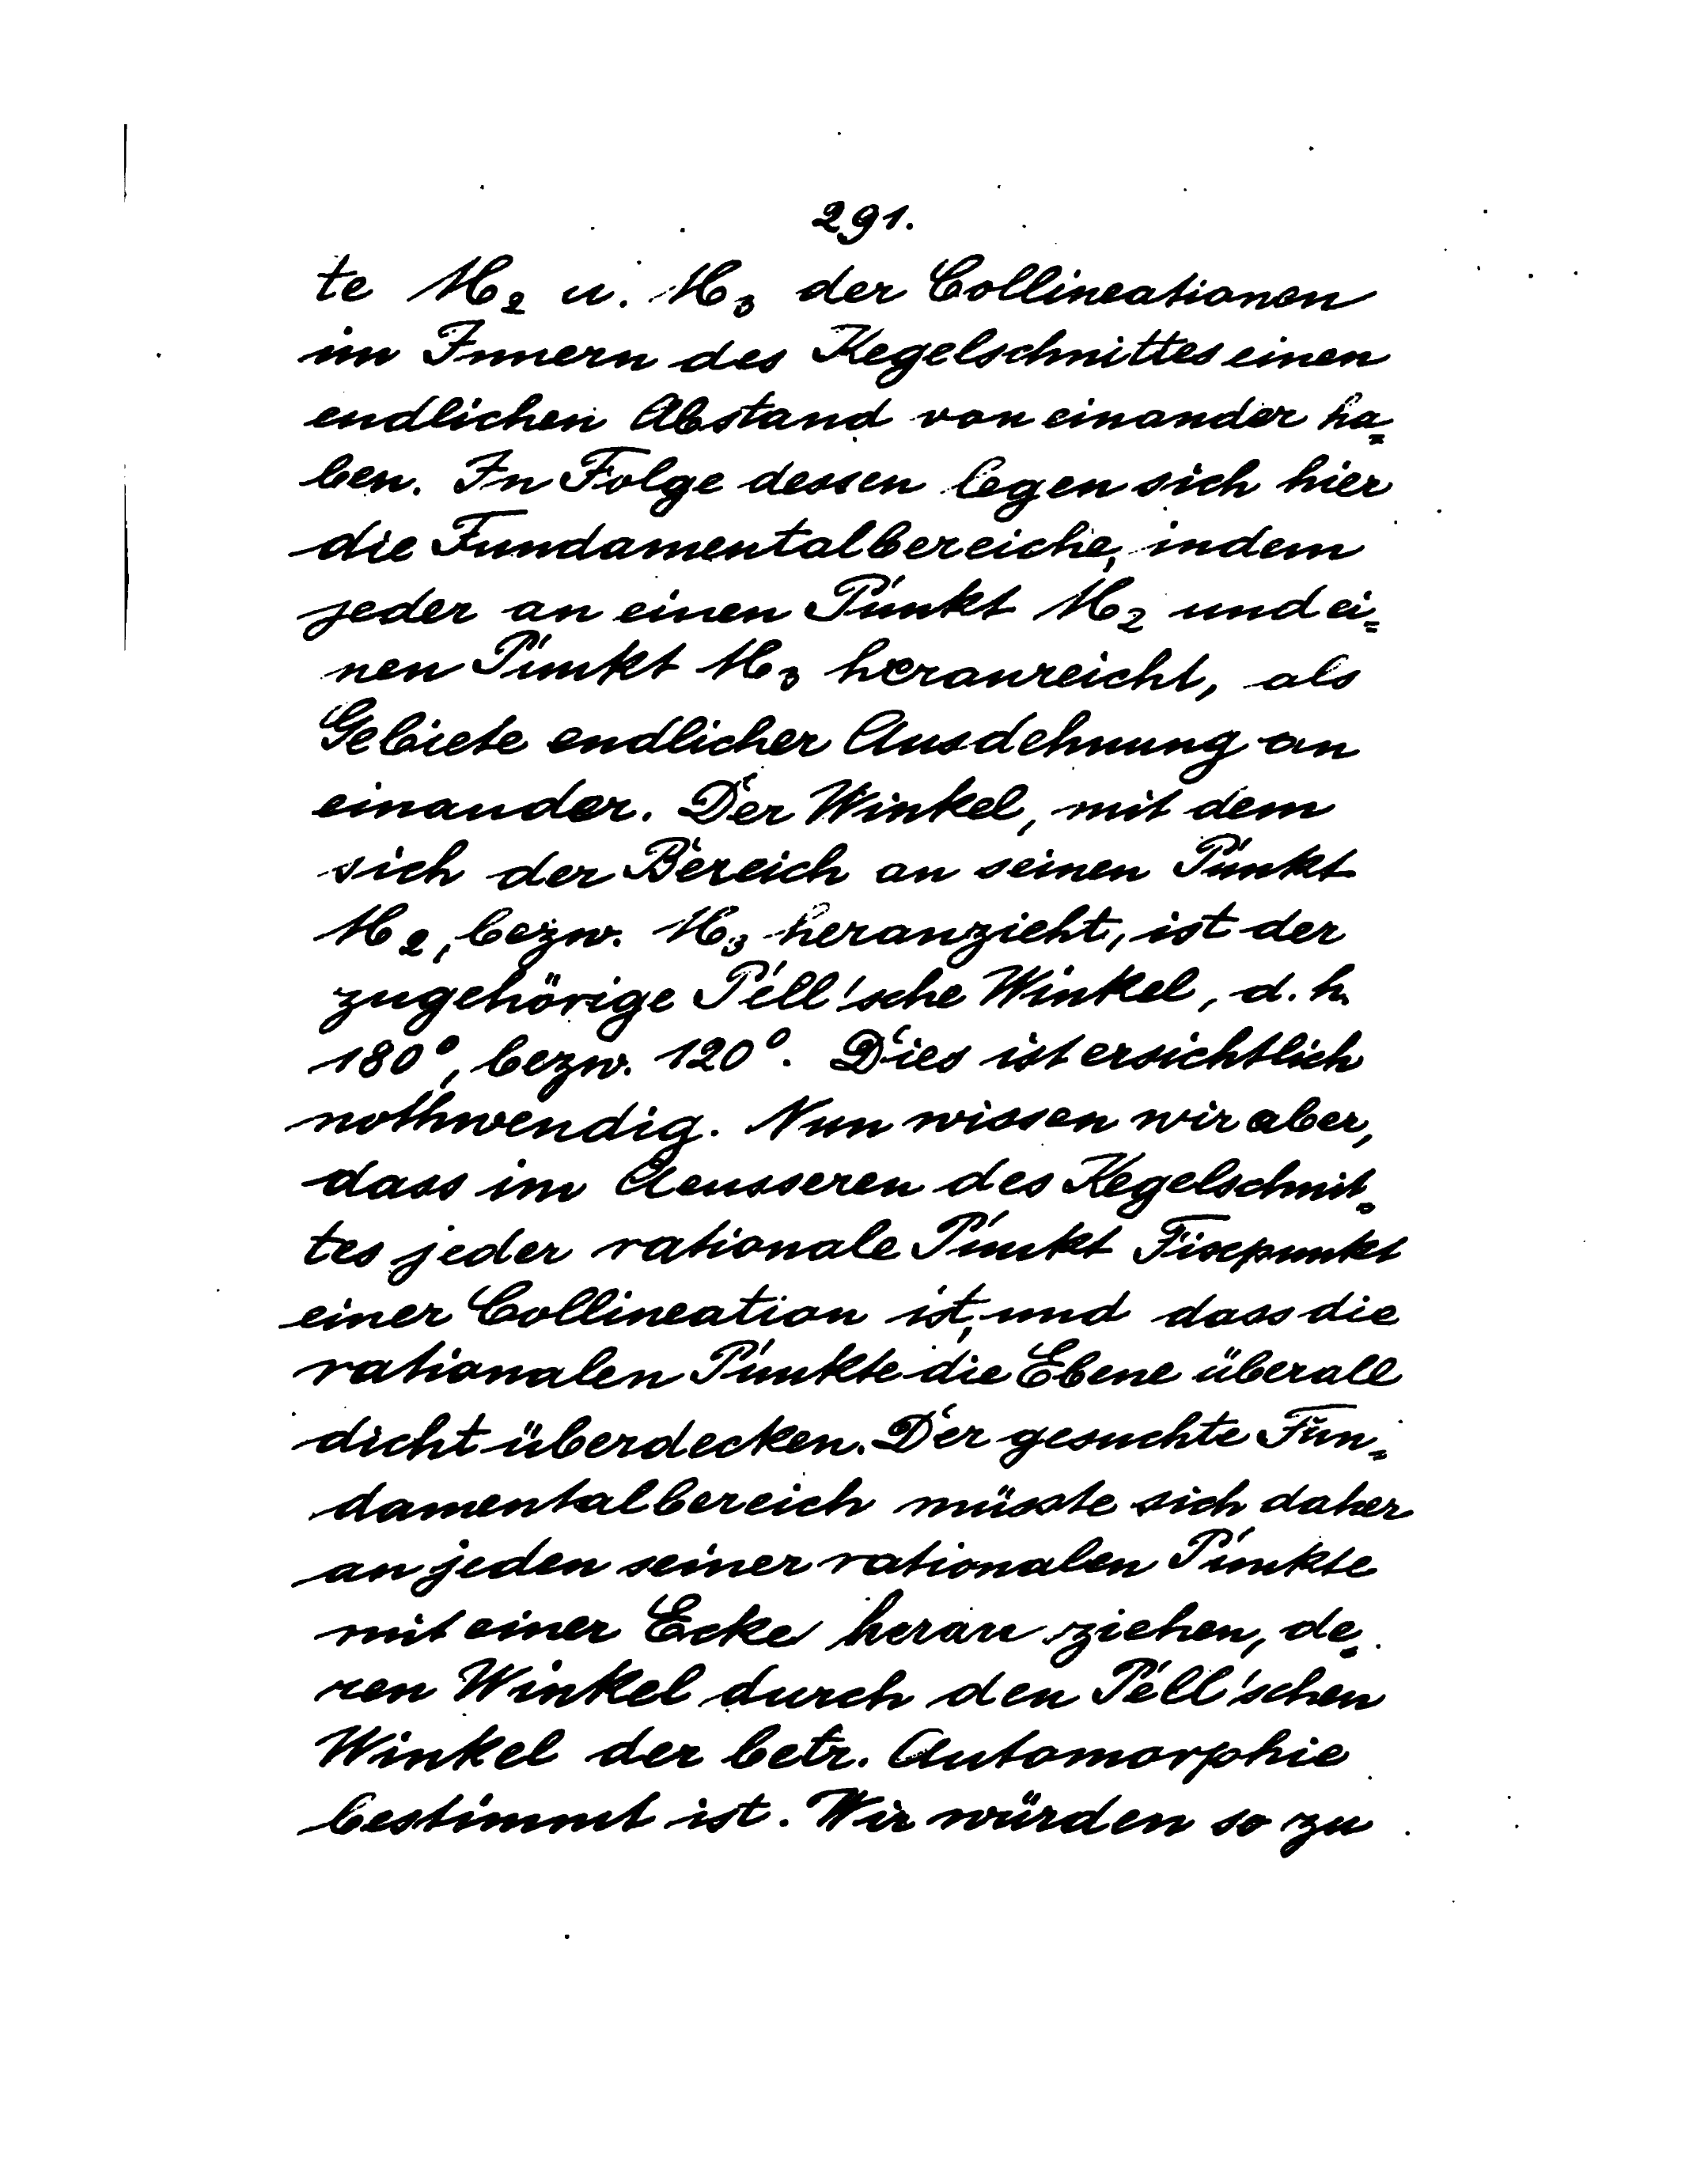 291.
te M₂ u. M₃ der Collineationen
im Innern des Kegelschnittes einen
endlichen Abstand von einander ha=
ben. In Folge dessen legen sich hier
die Fundamentalbereiche, indem
jeder an einen Punkt M₂ und ei=
nen Punkt M₃ heranreicht, als
Gebiete endlicher Ausdehnung an
einander. Der Winkel, mit dem
sich der Bereich an seinen Punkt
M₂, bezw. M₃ heranzieht, ist der
zugehörige Pell'sche Winkel, d. h.
180°, bezw. 120°. Dies ist ersichtlich
nothwendig. Nun wissen wir aber,
dass im Aeusseren des Kegelschnit=
tes jeder rationale Punkt Fixpunkt
einer Collineation ist, und dass die
rationalen Punkte die Ebene überall
dicht überdecken. Der gesuchte Fun=
damentalbereich müsste sich daher
an jeden seiner rationalen Punkte
mit einer Ecke heran ziehen, de=
ren Winkel durch den Pell'schen
Winkel der betr. Automorphie
bestimmt ist. Wir würden so zu